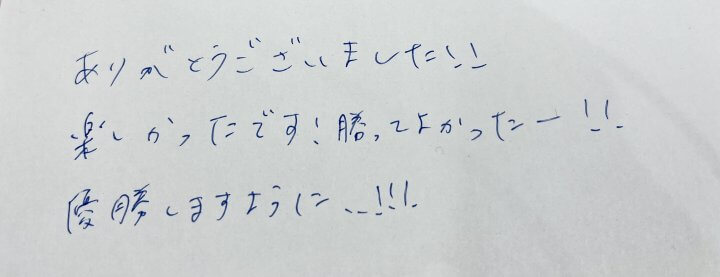 ありがとうございました!!
楽しかったです!勝ってよかったー!!
優勝しますように...!!!